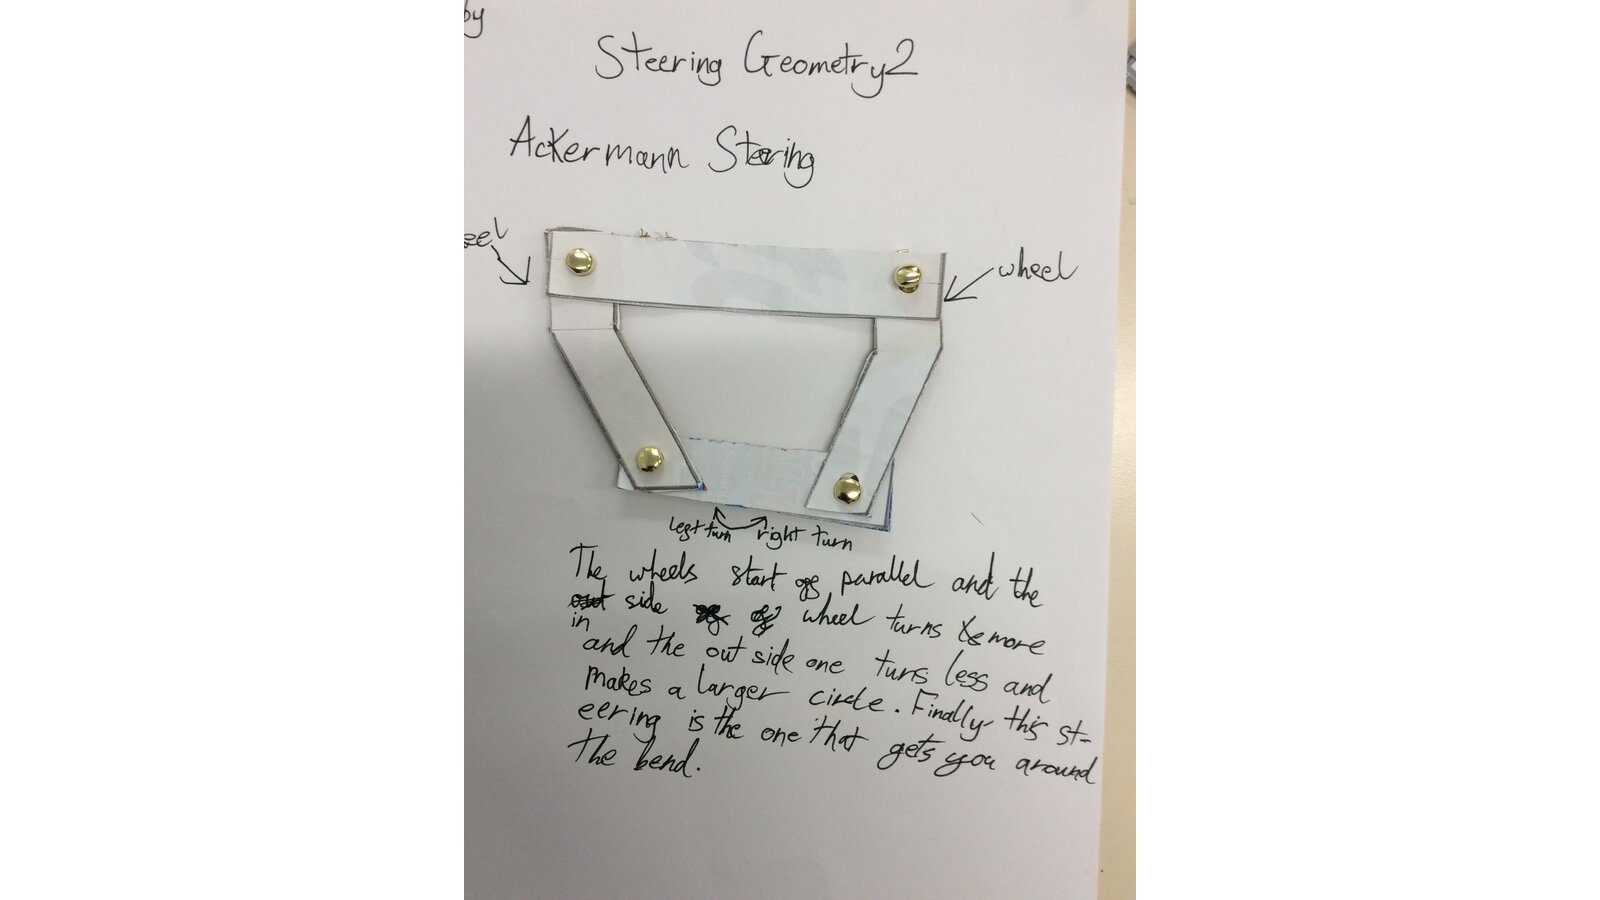 by
Steering Geometry 2
Ackermann Steering
eel
wheel
left turn right turn
The wheels start off parallel and the
out side of wheel turns more
in
and the out side one turns less and
makes a larger circle. Finally this st-
eering is the one that gets you around
the bend.